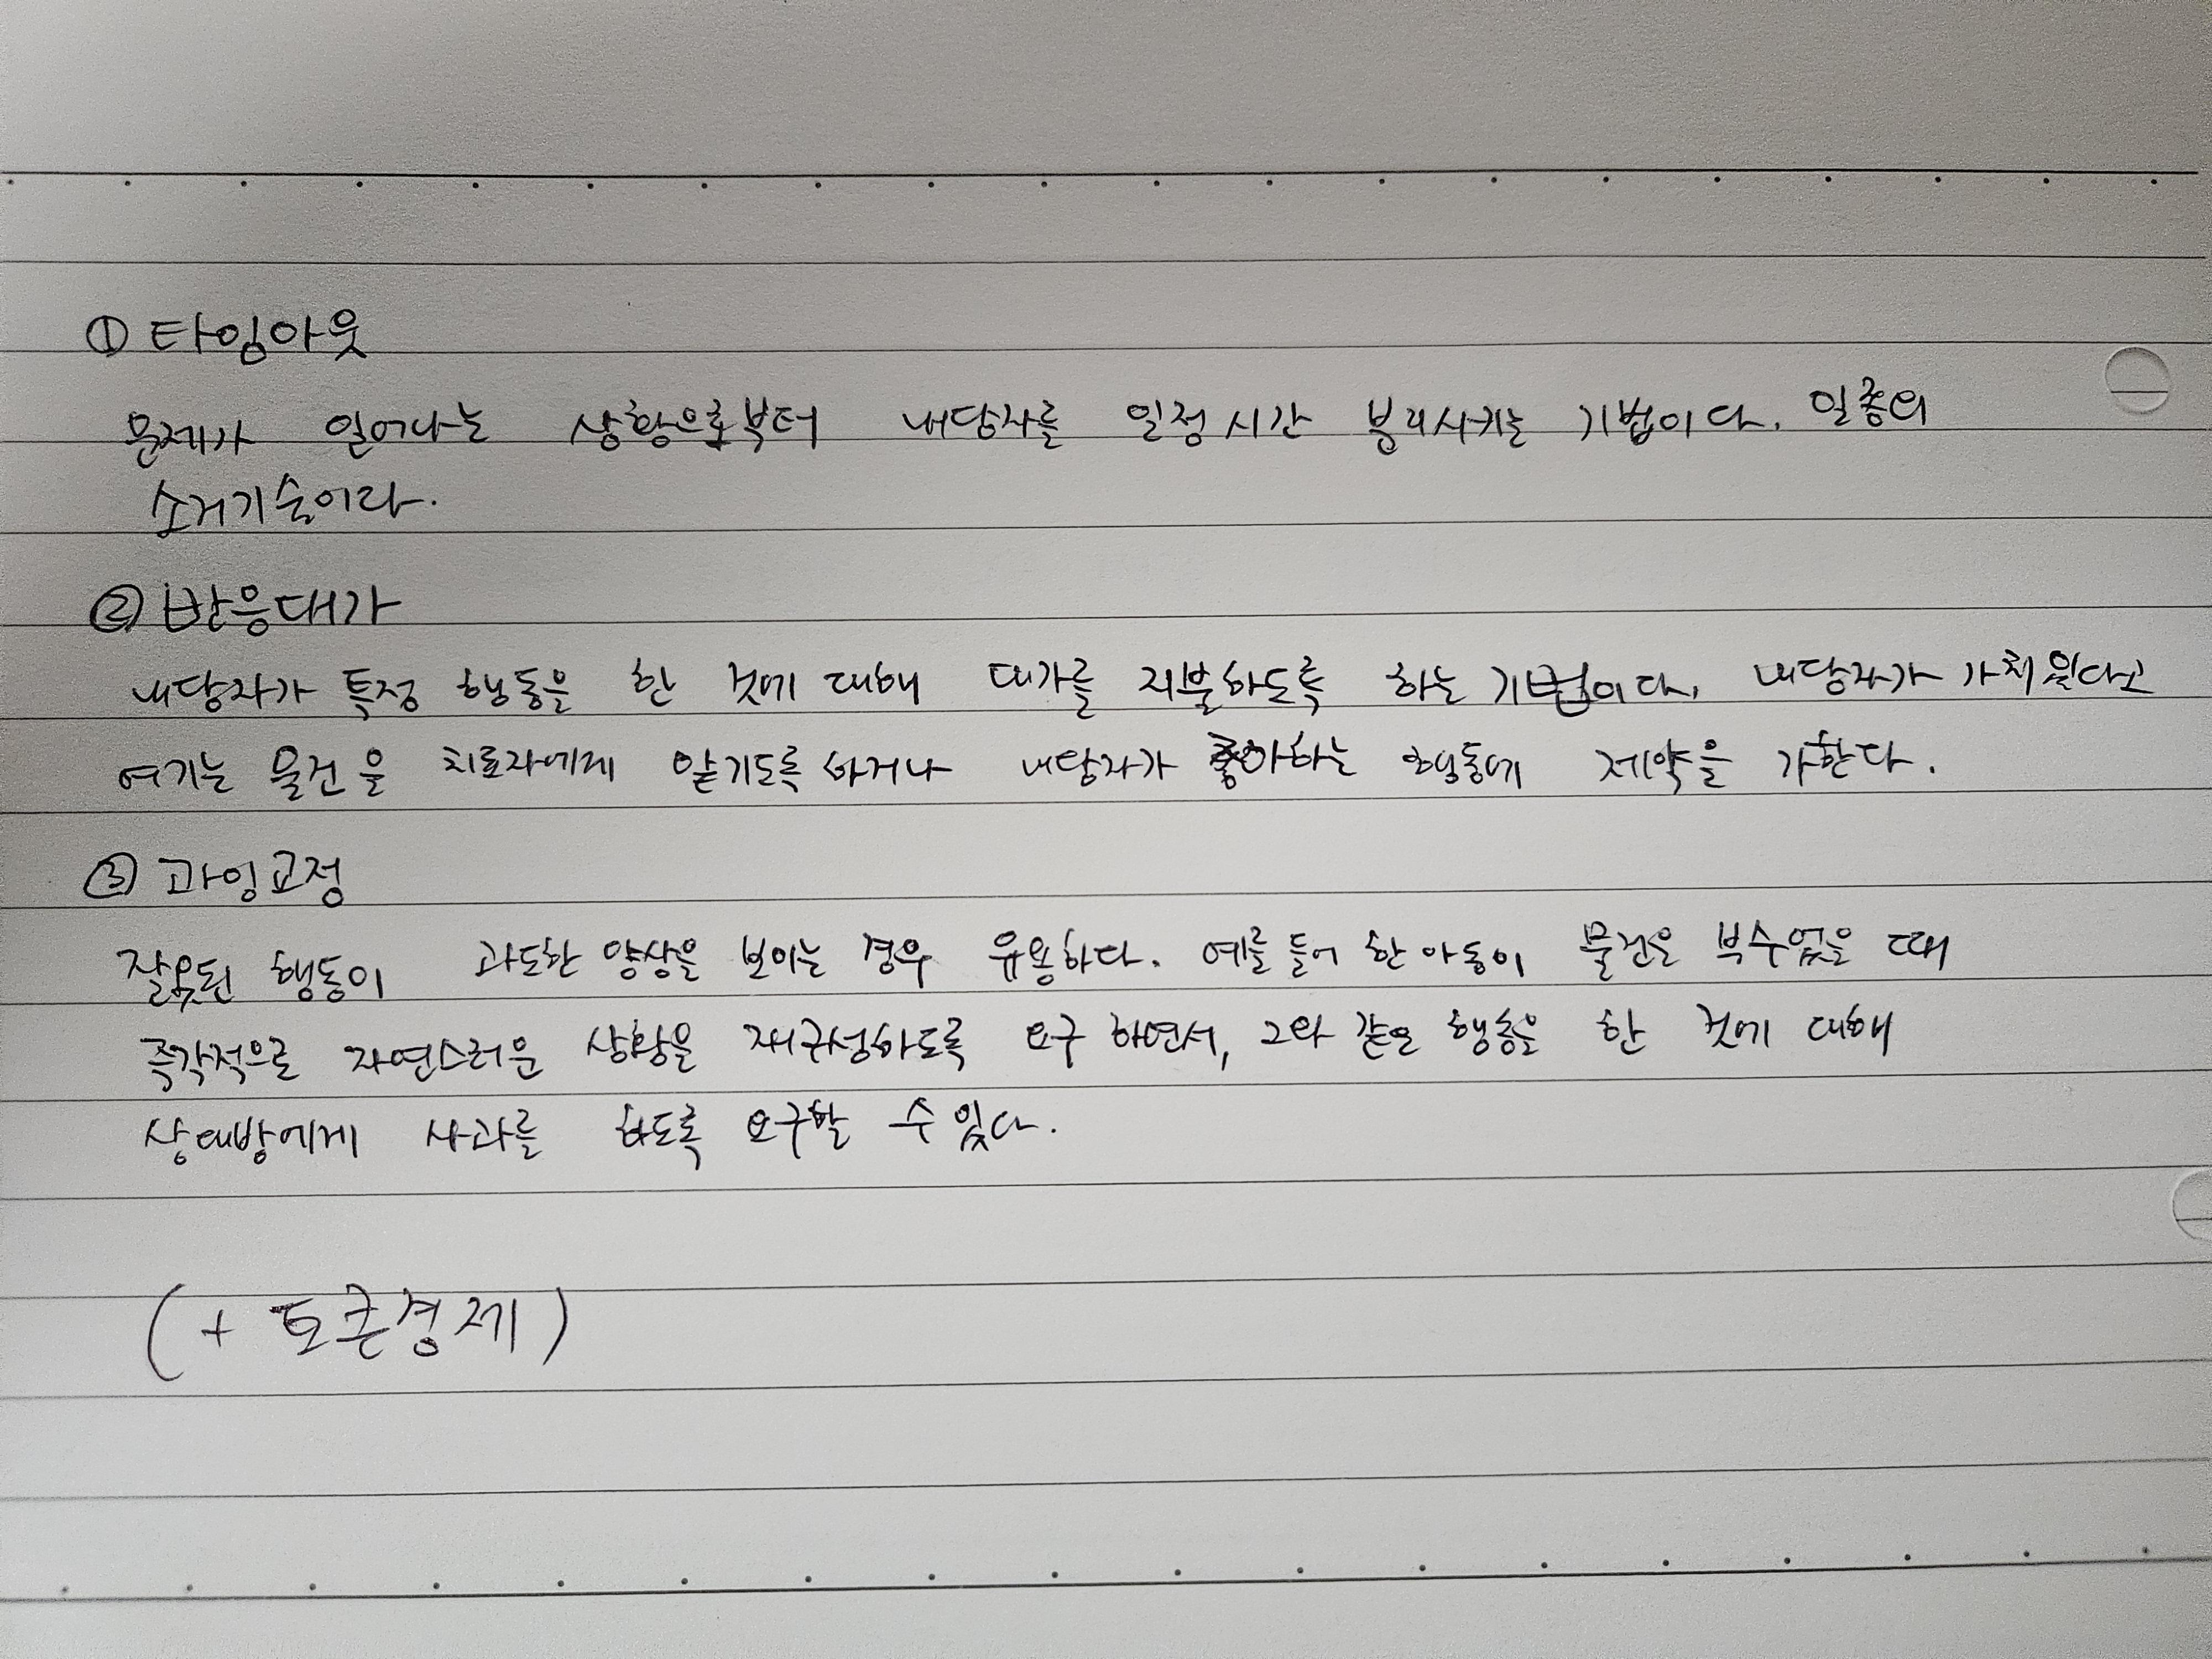 ① 타임아웃
문제가 일어나는 상황으로부터 내담자를 일정시간 분리시키는 기법이다. 일종의
소거기술이다.
② 반응대가
내담자가 특정 행동을 한 것에 대해 대가를 지불하도록 하는 기법이다. 내담자가 가치있다고
여기는 물건을 치료자에게 맡기도록 하거나 내담자가 좋아하는 행동에 제약을 가한다.
③ 과잉교정
잘못된 행동이 과도한 양상을 보이는 경우 유용하다. 예를 들어 한 아동이 물건을 부수었을 때
즉각적으로 자연스러운 상황을 재구성하도록 요구하면서, 그와 같은 행동을 한 것에 대해
상대방에게 사과를 하도록 요구할 수 있다.
(+ 토큰경제)